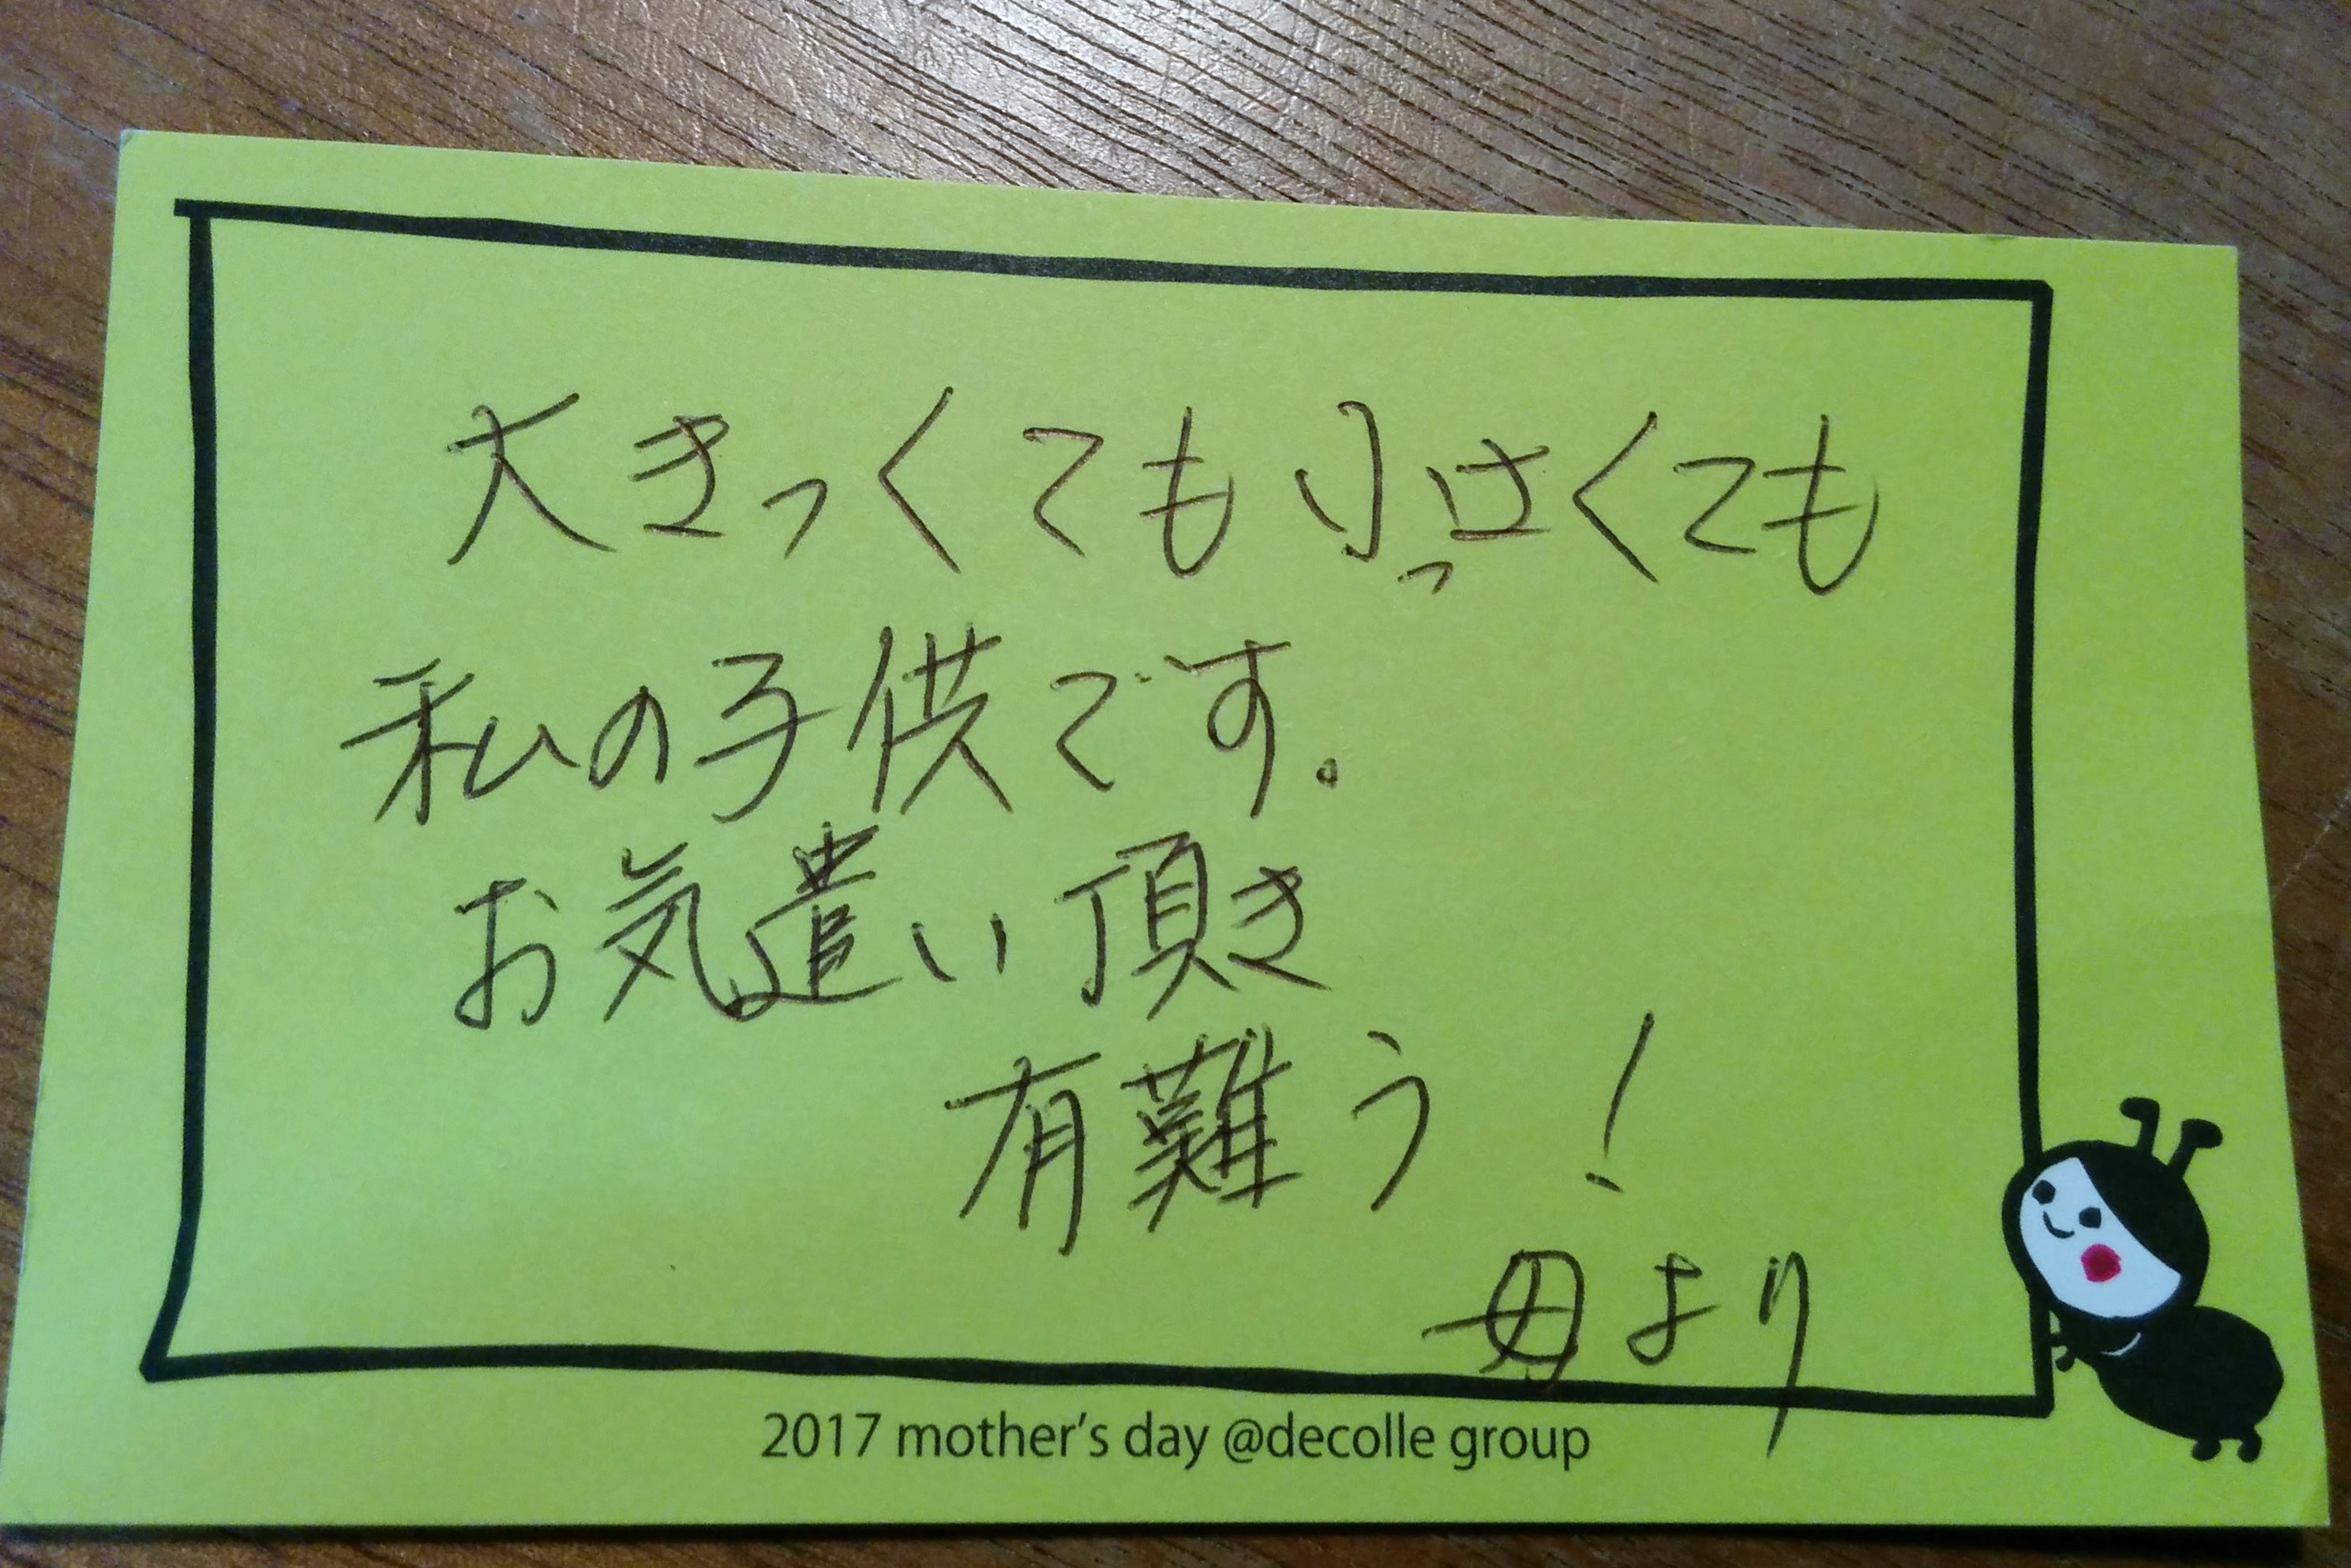 大きっくても小っさくても
私の子供です。
お気遣い頂き
有難う!
母より
2017 mother's day @decolle group